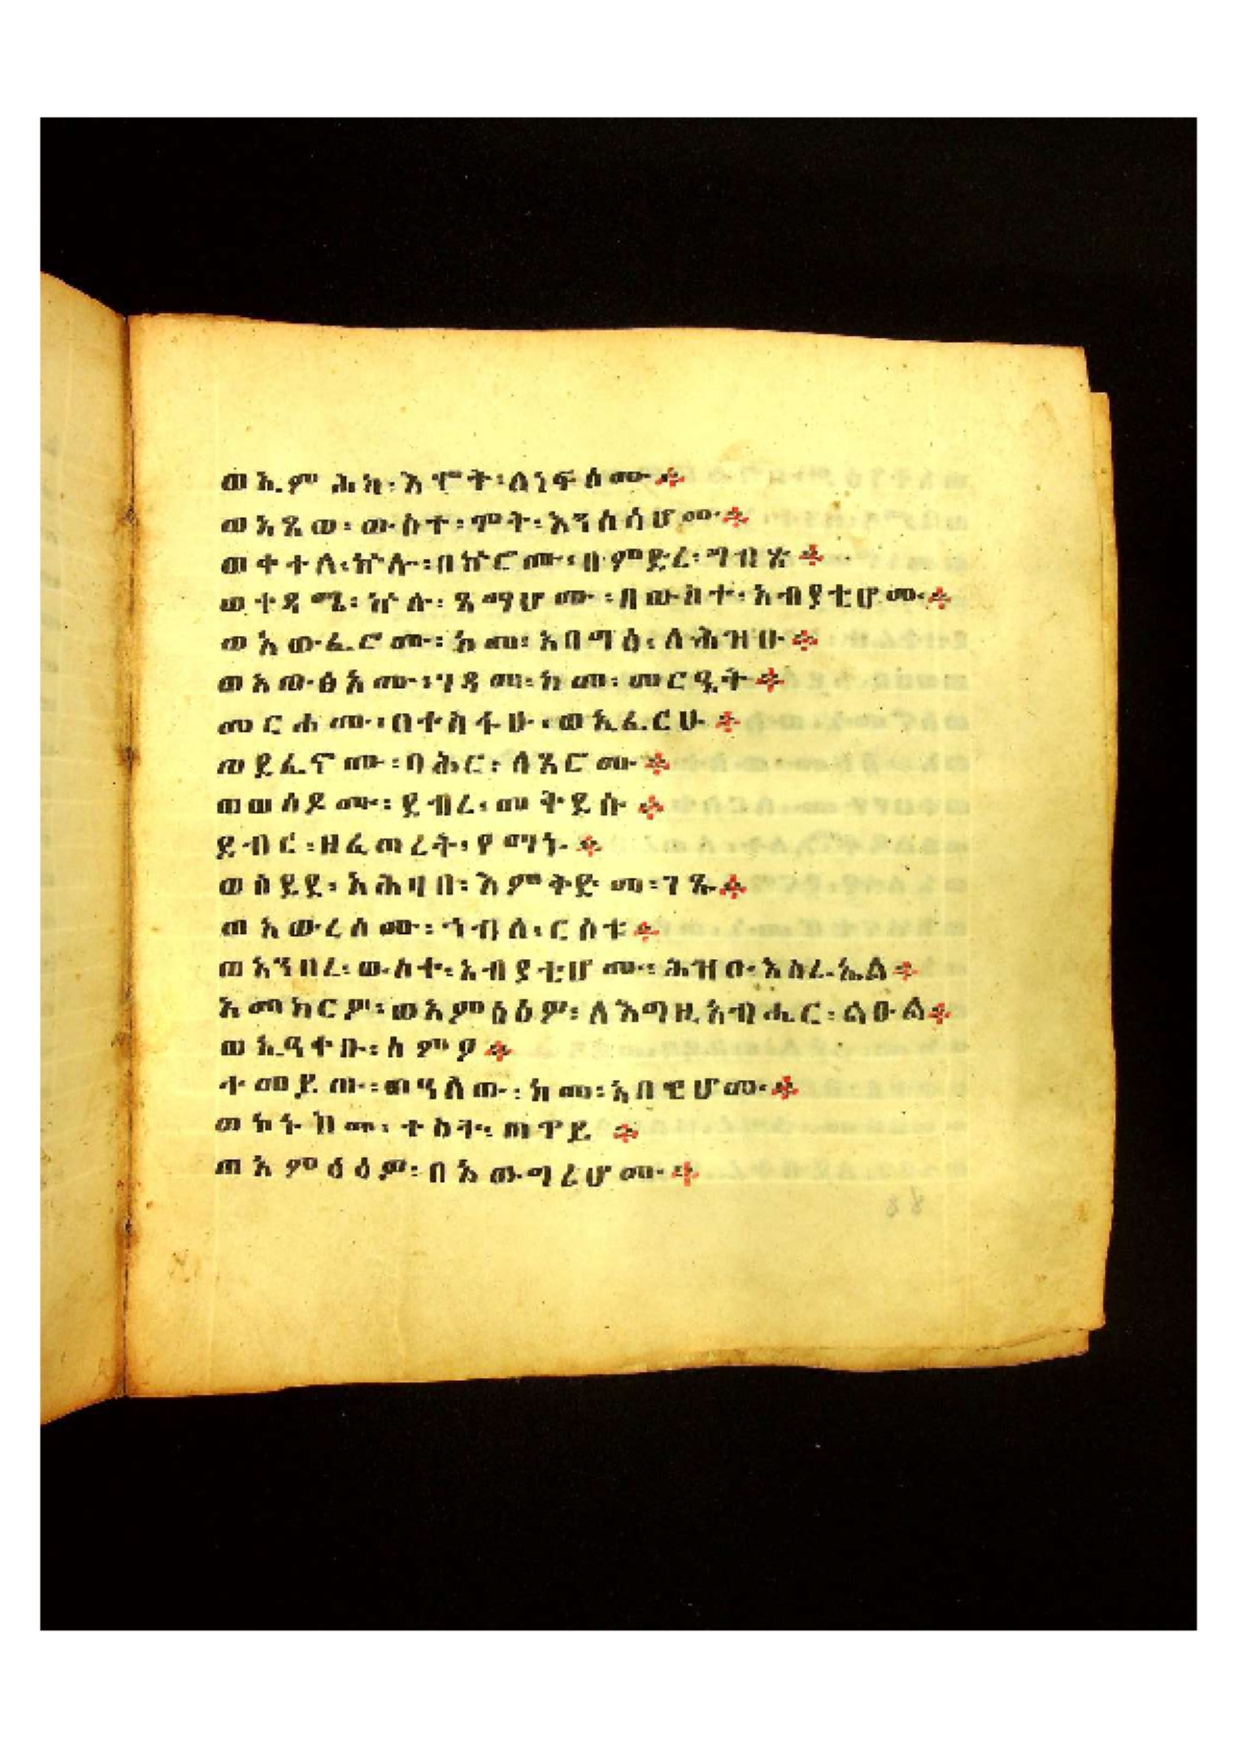 ወኢምሕከ፡እሞት፡ለነፍሰሙ፨
ወአጸወ፡ውስተ፡ሞት፡እንስሳሆሙ፨
ወቀተለ፡ኵሉ፡በኵሮሙ፡በምድረ፡ግብጽ፨
ወቀዳሜ፡ኵሉ፡ጻማሆሙ፡በውስተ፡አብያቲሆሙ፨
ወአውፈሮሙ፡ከመ፡አባግዕ፡ለሕዝቡ፨
ወአውፅአሙ፡ገዳመ፡ከመ፡መርዔት፨
መርሐሙ፡በተስፋሁ፡ወኢፈርሁ፨
ወደፈኖሙ፡ባሕር፡ለጸሮሙ፨
ወወሰዶሙ፡ደብረ፡መቅደሱ፨
ደብር፡ዘፈጠረት፡የማኑ፨
ወሰደደ፡አሕዛበ፡እምቅድመ፡ገጹ፨
ወአውረሰሙ፡ኀብለ፡ርስቱ፨
ወአንበረ፡ውስተ፡አብያቲሆሙ፡ሕዝበ፡እስራኤል፨
አመክርዎ፡ወአምዕዕዎ፡ለእግዚአብሔር፡ልዑል፨
ወኢዓቀቡ፡ስምዖ፨
ተመይጡ፡ወዓለው፡ከመ፡አበዊሆሙ፨
ወኮኑ፡ከመ፡ቀስት፡ጠዋይ፨
ወአምዕዕዎ፡በአውግረሆሙ፨